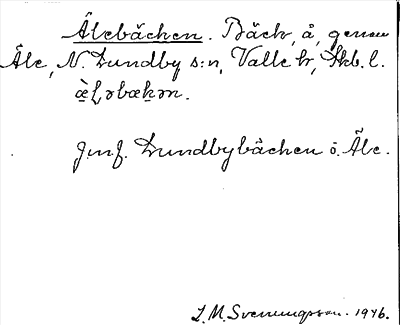 Älebäcken. Bäck, å, genom
Äle, N. Lundby s:n, Valle hr, Skb. l.
æ̀ḷəbæḵən.
Jmf. Lundbybäcken i. Äle.
L. M. Svenungsson. 1946.